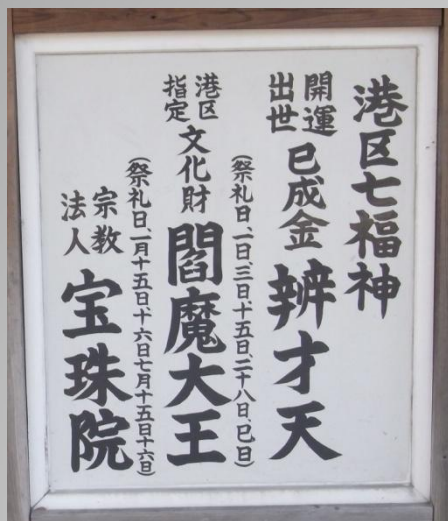 港区七福神
開運出世 巳成金 辨才天
(祭礼日、一日、三日十五日、二十八日、巳日)
港区指定 文化財 閻魔大王
(祭礼日、一月十五日十六日七月十五日十六日)
宗教法人 宝珠院